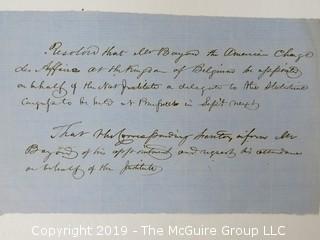 Resolved that Mr Bayard the American Chargé
des Affairs at the Kingdom of Belgium be appointed
on behalf of the Nat Institute a delegate to the Statistical
Congress to be held at Brussels in Sept next
That the Corresponding Secretary inform Mr
Bayard of his appointment and request his attendance
on behalf of the Institute
Copyright 2019 - The McGuire Group LLC